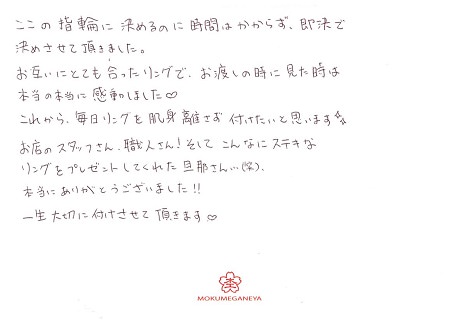 ここの指輪に決めるのに時間はかからず、即決で
決めさせて頂きました。
お互いにとても合ったリングで、お渡しの時に見た時は
本当の本当に感動しました♡
これから、毎日リングを肌身離さず付けたいと思います☆
お店のスタッフさん、職人さん!そしてこんなにステキな
リングをプレゼントしてくれた旦那さん…(笑)、
本当にありがとうございました!!
一生大切に付けさせて頂きます♡
MOKUMEGANEYA